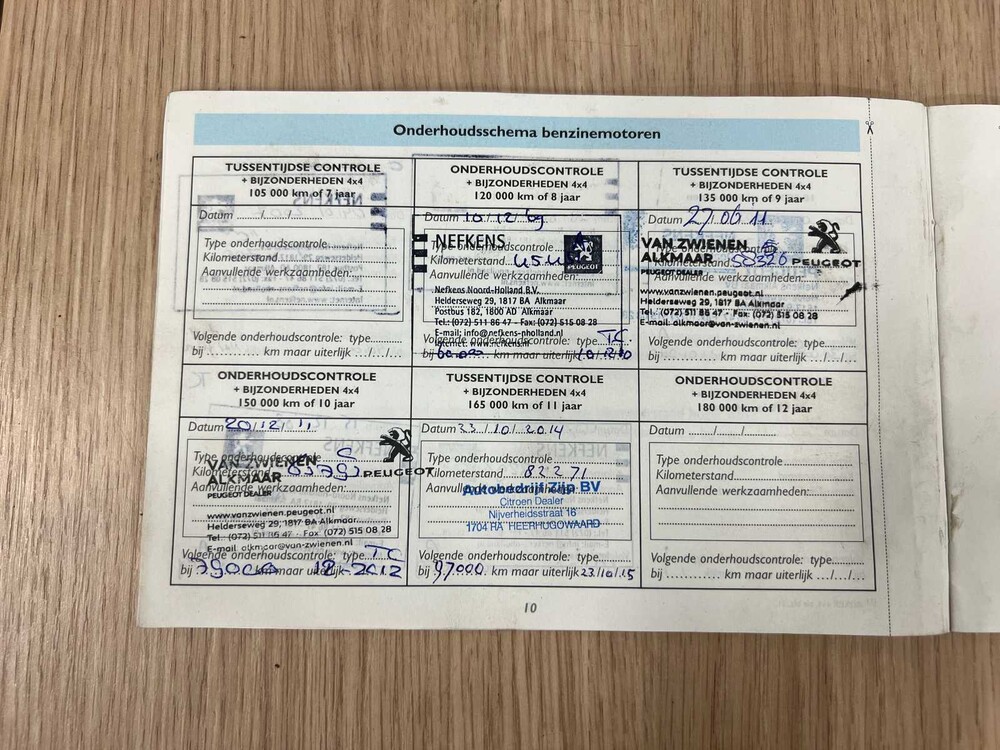 Onderhoudsschema benzinemotoren
TUSSENTIJDSE CONTROLE
+ BIJZONDERHEDEN 4x4
105 000 km of 7 jaar
Datum ....../....../......
Type onderhoudscontrole
Kilometerstand
Aanvullende werkzaamheden:
Volgende onderhoudscontrole: type
bij ............ km maar uiterlijk .../.../...
ONDERHOUDSCONTROLE
+ BIJZONDERHEDEN 4x4
120 000 km of 8 jaar
Datum 10/12/09
NEFKENS
PEUGEOT
Type onderhoudscontrole
Kilometerstand
Aanvullende werkzaamheden:
Nefkens Noord-Holland B.V.
Helderseweg 29, 1817 BA Alkmaar
Postbus 182, 1800 AD Alkmaar
Tel.: (072) 511 86 47 - Fax: (072) 515 08 28
E-mail: info@nefkens-nholland.nl
Internet: www.nefkens.nl
Volgende onderhoudscontrole: type TC
bij 60.000 km maar uiterlijk 10/12/10
TUSSENTIJDSE CONTROLE
+ BIJZONDERHEDEN 4x4
135 000 km of 9 jaar
Datum 27.06.11
VAN ZWIENEN
ALKMAAR
PEUGEOT DEALER
PEUGEOT
Type onderhoudscontrole
Kilometerstand 58326
Aanvullende werkzaamheden:
www.vanzwienen.peugeot.nl
Helderseweg 29, 1817 BA Alkmaar
Tel.: (072) 511 86 47 - Fax: (072) 515 08 28
E-mail: alkmaar@van-zwienen.nl
Volgende onderhoudscontrole: type
bij ............ km maar uiterlijk .../.../...
ONDERHOUDSCONTROLE
+ BIJZONDERHEDEN 4x4
150 000 km of 10 jaar
Datum 20/12/11
Type onderhoudscontrole S
VAN ZWIENEN
Kilometerstand
ALKMAAR
PEUGEOT
Aanvullende werkzaamheden:
PEUGEOT DEALER
www.vanzwienen.peugeot.nl
Helderseweg 29, 1817 BA Alkmaar
Tel.: (072) 511 86 47 - Fax: (072) 515 08 28
E-mail: alkmaar@van-zwienen.nl
Volgende onderhoudscontrole: type TC
bij km maar uiterlijk 12-2012
TUSSENTIJDSE CONTROLE
+ BIJZONDERHEDEN 4x4
165 000 km of 11 jaar
Datum 23/10/2014
Type onderhoudscontrole
Kilometerstand 82271
Aanvullende werkzaamheden:
Autobedrijf Zijp BV
Citroen Dealer
Nijverheidsstraat 16
1704 RA HEERHUGOWAARD
Volgende onderhoudscontrole: type
bij 97000 km maar uiterlijk 23/10/15
ONDERHOUDSCONTROLE
+ BIJZONDERHEDEN 4x4
180 000 km of 12 jaar
Datum ....../....../......
Type onderhoudscontrole
Kilometerstand
Aanvullende werkzaamheden:
Volgende onderhoudscontrole: type
bij ............ km maar uiterlijk .../.../...
10